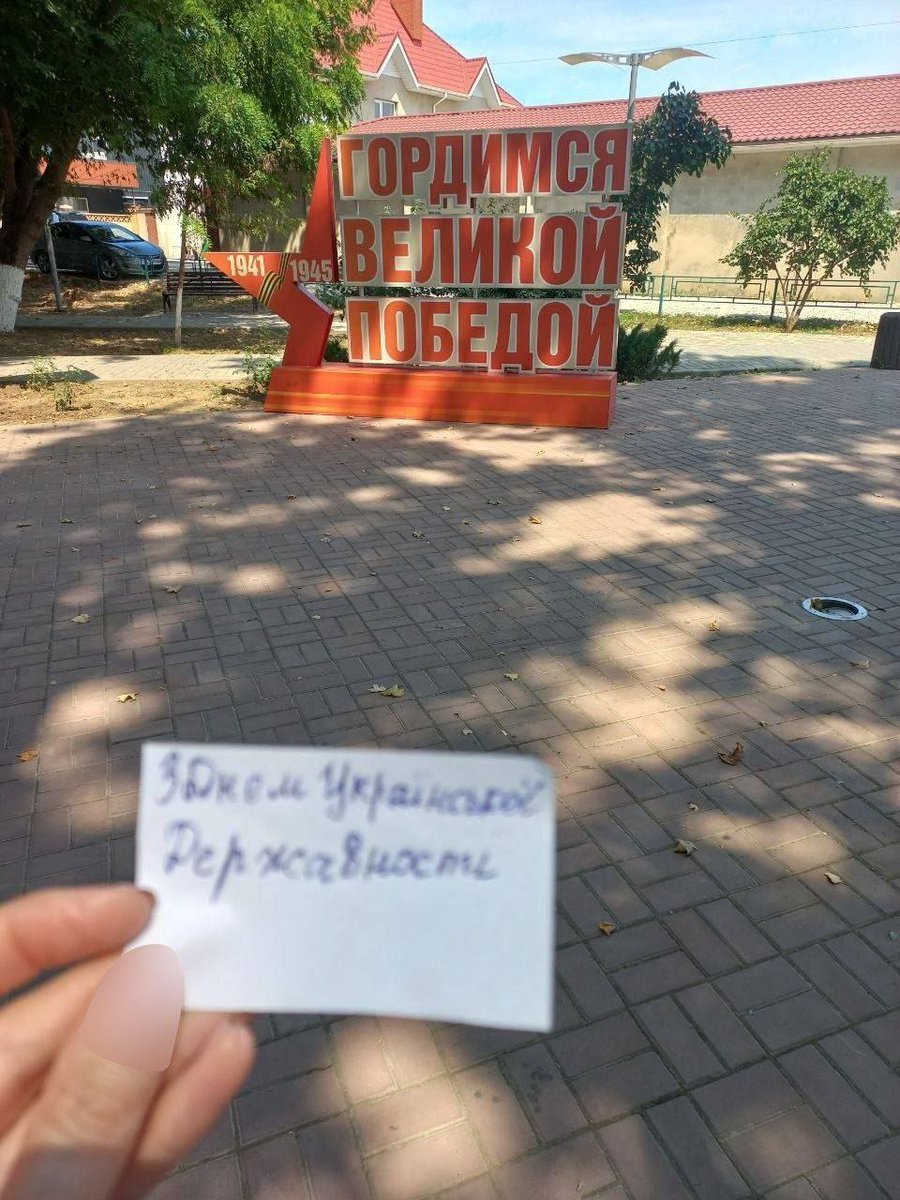 ГОРДИМСЯ
ВЕЛИКОЙ
1941 1945
ПОБЕДОЙ
З Днем Української
Державности